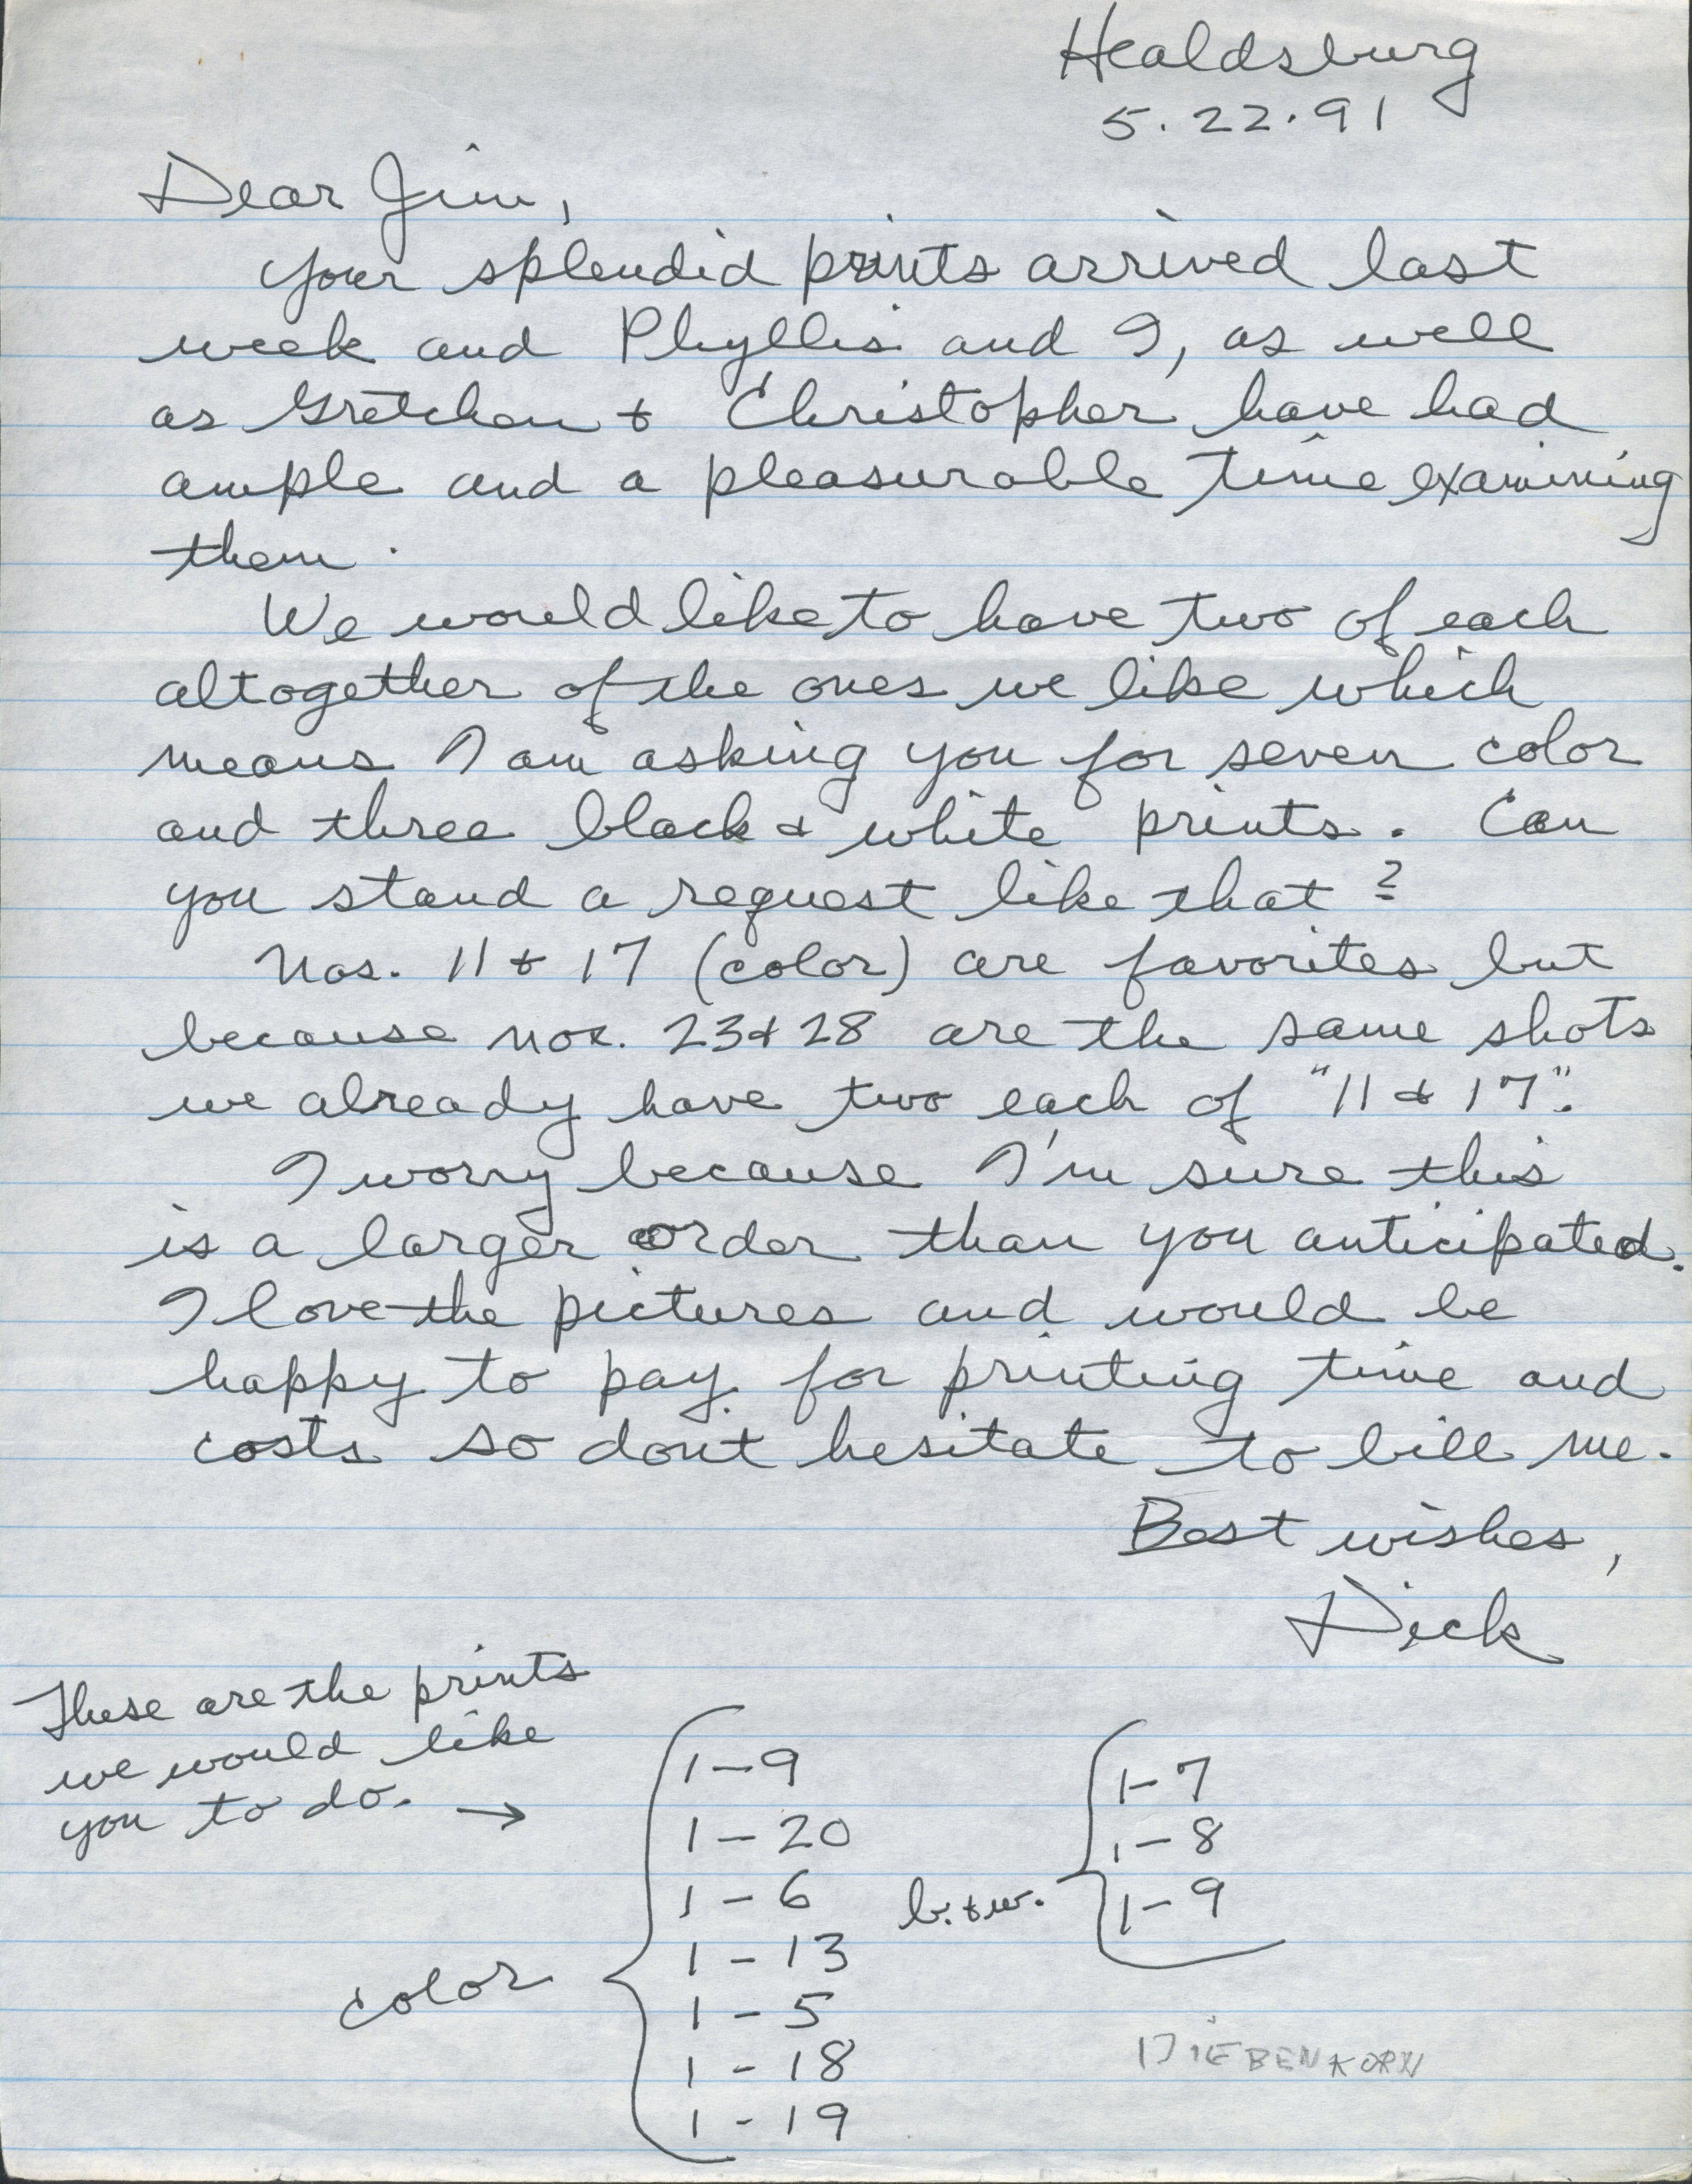 Healdsburg
5.22.91
Dear Jim,
Your splendid prints arrived last
week and Phyllis and I, as well
as Gretchen & Christopher have had
ample and a pleasurable time examining
them.
We would like to have two of each
altogether of the ones we like which
means I am asking you for seven color
and three black & white prints. Can
you stand a request like that?
Nos. 11 & 17 (color) are favorites but
because nos. 23 & 28 are the same shots
we already have two each of "11 & 17".
I worry because I'm sure this
is a larger order than you anticipated.
I love the pictures and would be
happy to pay for printing time and
costs so dont hesitate to bill me.
Best wishes,
Dick
These are the prints
we would like
you to do. →
color
1-9
1-20
1-6
1-13
1-5
1-18
1-19
b. & w.
1-7
1-8
1-9
DIEBENKORN